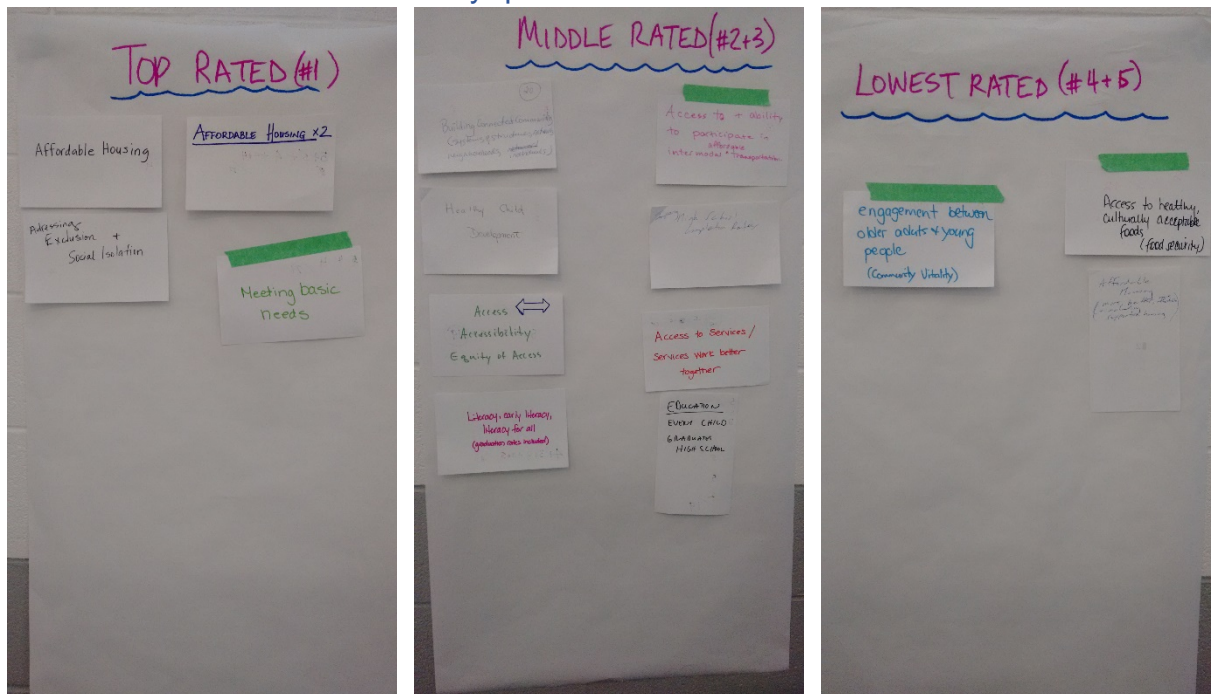 TOP RATED (#1)
Affordable Housing
AFFORDABLE HOUSING x2
Adressing
Exclusion +
Social Isolation
Meeting basic
needs
MIDDLE RATED (#2+3)
Building Connected Community
Access to + ability
to participate in
affordable
intermodal transportation
Healthy Child
Development
Access ⇔
Accessibility
Equity of Access
Access to Services/
Services work better
together
Literacy, early literacy,
literacy for all
(graduation rates included)
EDUCATION
EVERY CHILD
GRADUATES
HIGH SCHOOL
LOWEST RATED (#4+5)
engagement between
older adults + young
people
(Community Vitality)
Access to healthy,
culturally acceptable
foods
(food security)
Affordable
Housing